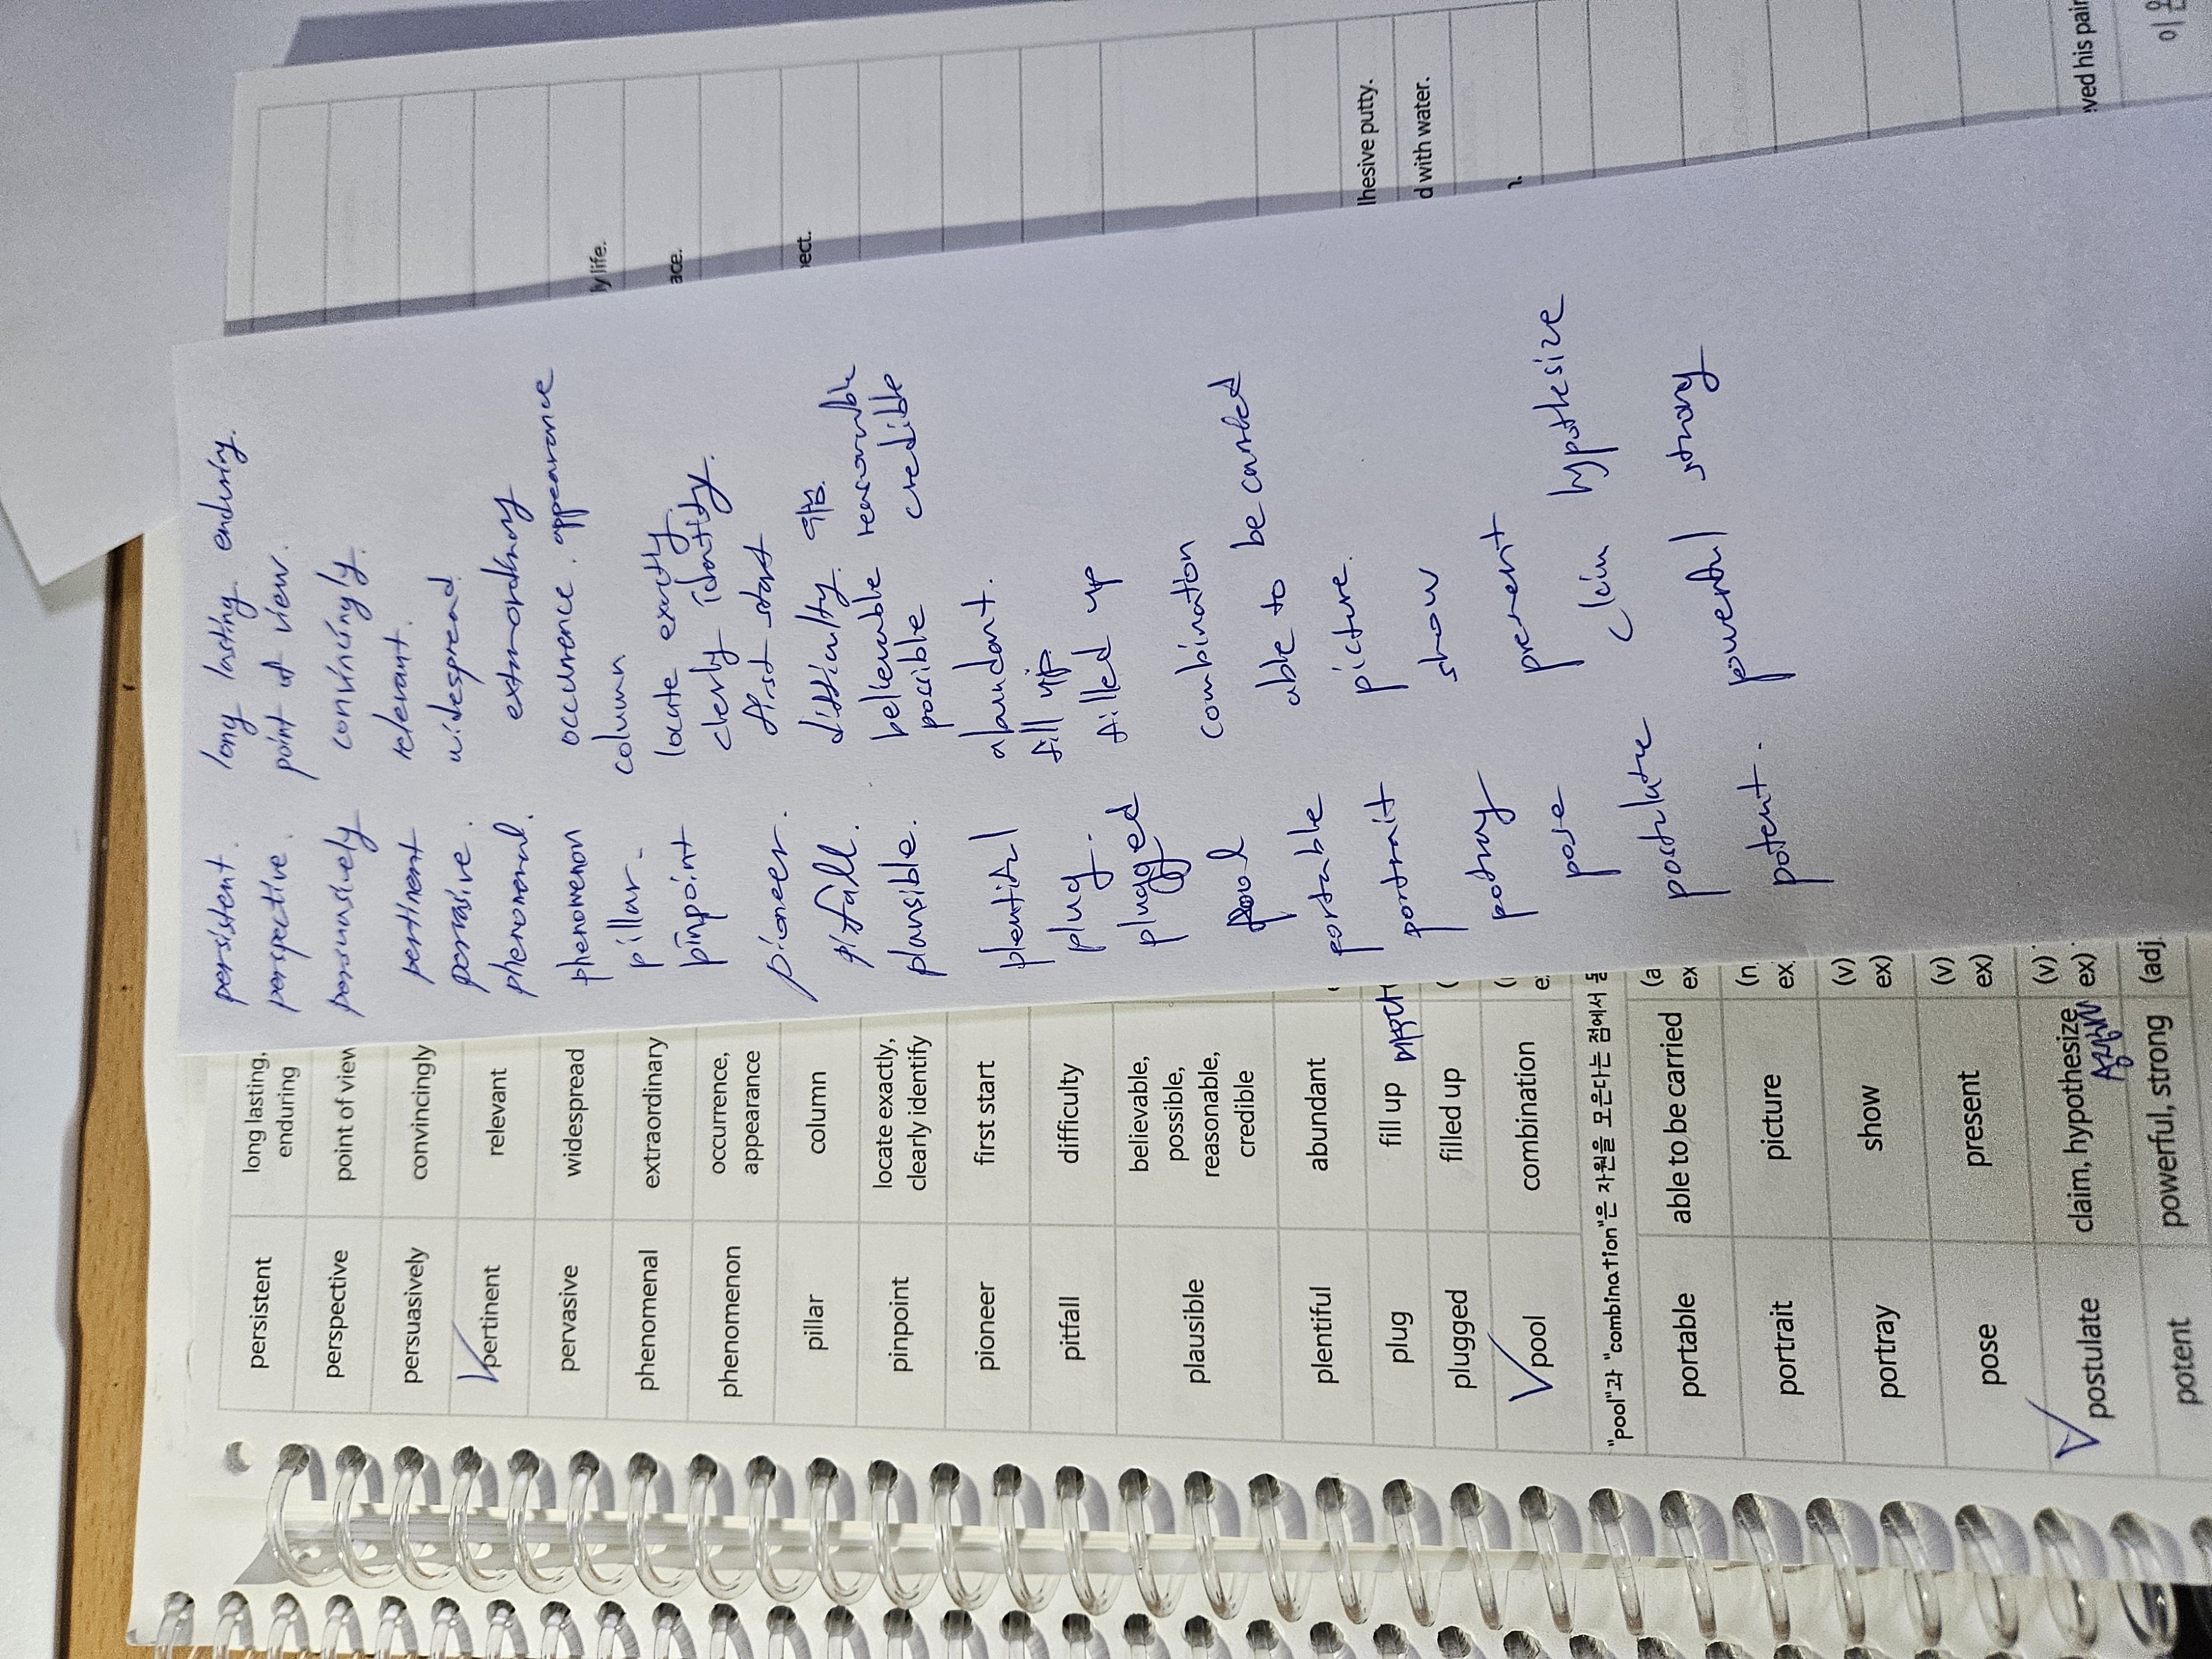 persistent long lasting, enduring
perspective point of view
persuasively convincingly
pertinent relevant
pervasive widespread
phenomenal extraordinary
phenomenon occurrence, appearance
pillar column
pinpoint locate exactly, clearly identify
pioneer first start
pitfall difficulty
plausible believable, possible, reasonable, credible
plentiful abundant
plug fill up
plugged filled up
pool combination
"pool"과 "combination"은 자원을 모은다는 점에서
portable able to be carried (a ex
portrait picture (n. ex
portray show (v) ex)
pose present (v) ex)
postulate claim, hypothesize (v) ex)
potent powerful, strong (adj.
persistent. long lasting enduring.
perspective. point of view.
persuasively convincingly.
pertinent relevant.
pervasive. widespread
phenomenal. extraordinary
phenomenon occurence. appearance
pillar. column
pinpoint locate exactly. clearly identify.
pioneer. first start
pitfall. difficulty.
plausible. believable reasonable possible credible
plentiful abundant.
plug. fill up
plugged filled up
pool combination
portable able to be carried
portrait picture.
potray show
pose present
postulate claim hypothesize
potent. powerful strong
ly life.
ace.
ect.
lhesive putty.
d with water.
ved his pain